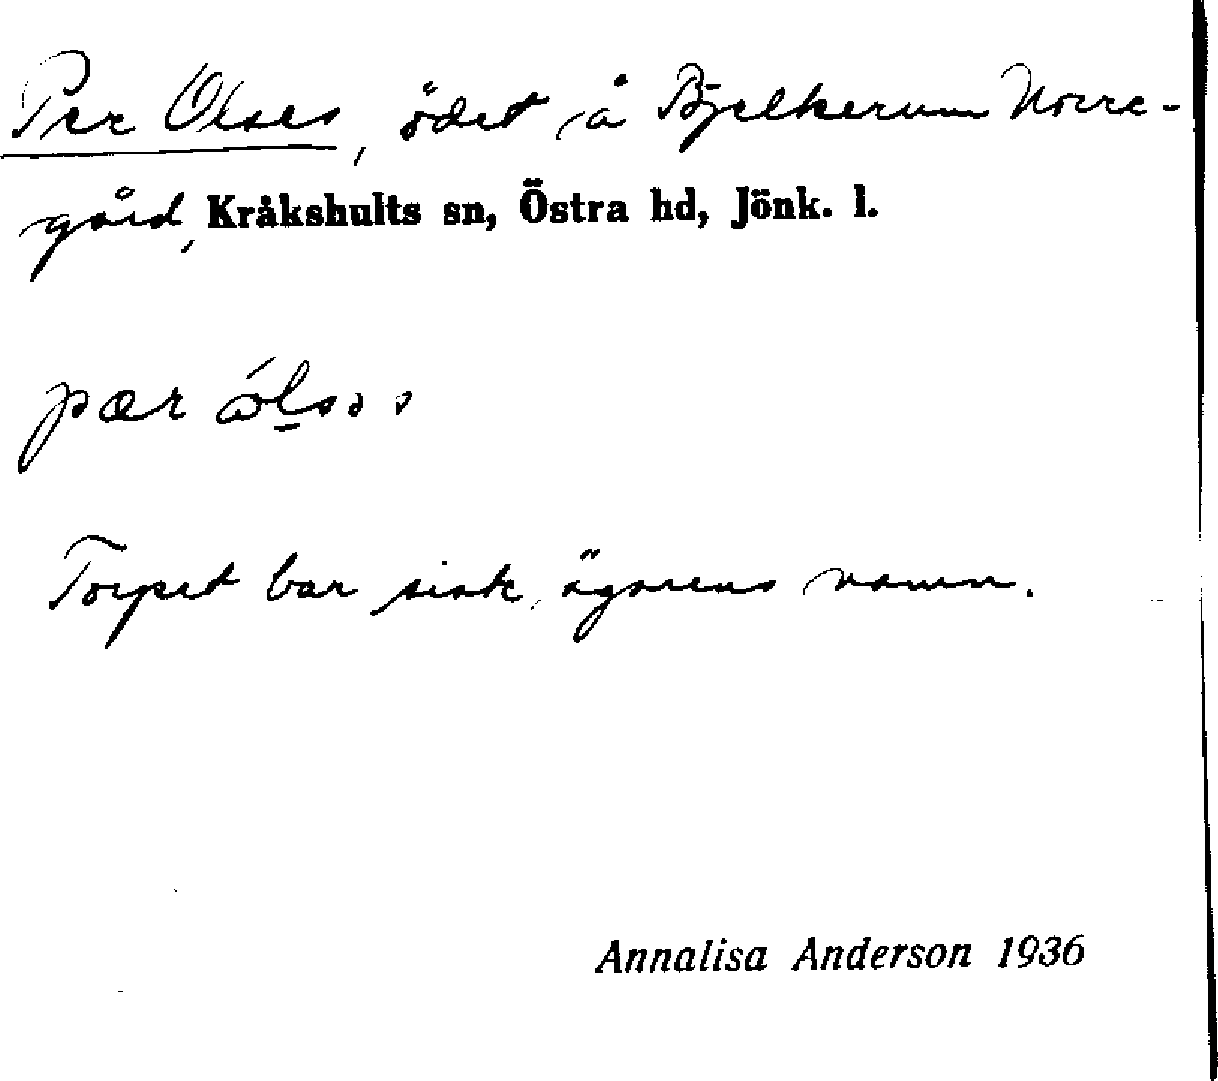 Per Olses, ödet å Bjelkerum Norre-
gård, Kråkshults sn, Östra hd, Jönk. l.
pær
Torpet bar sist ägarens namn.
Annalisa Anderson 1936